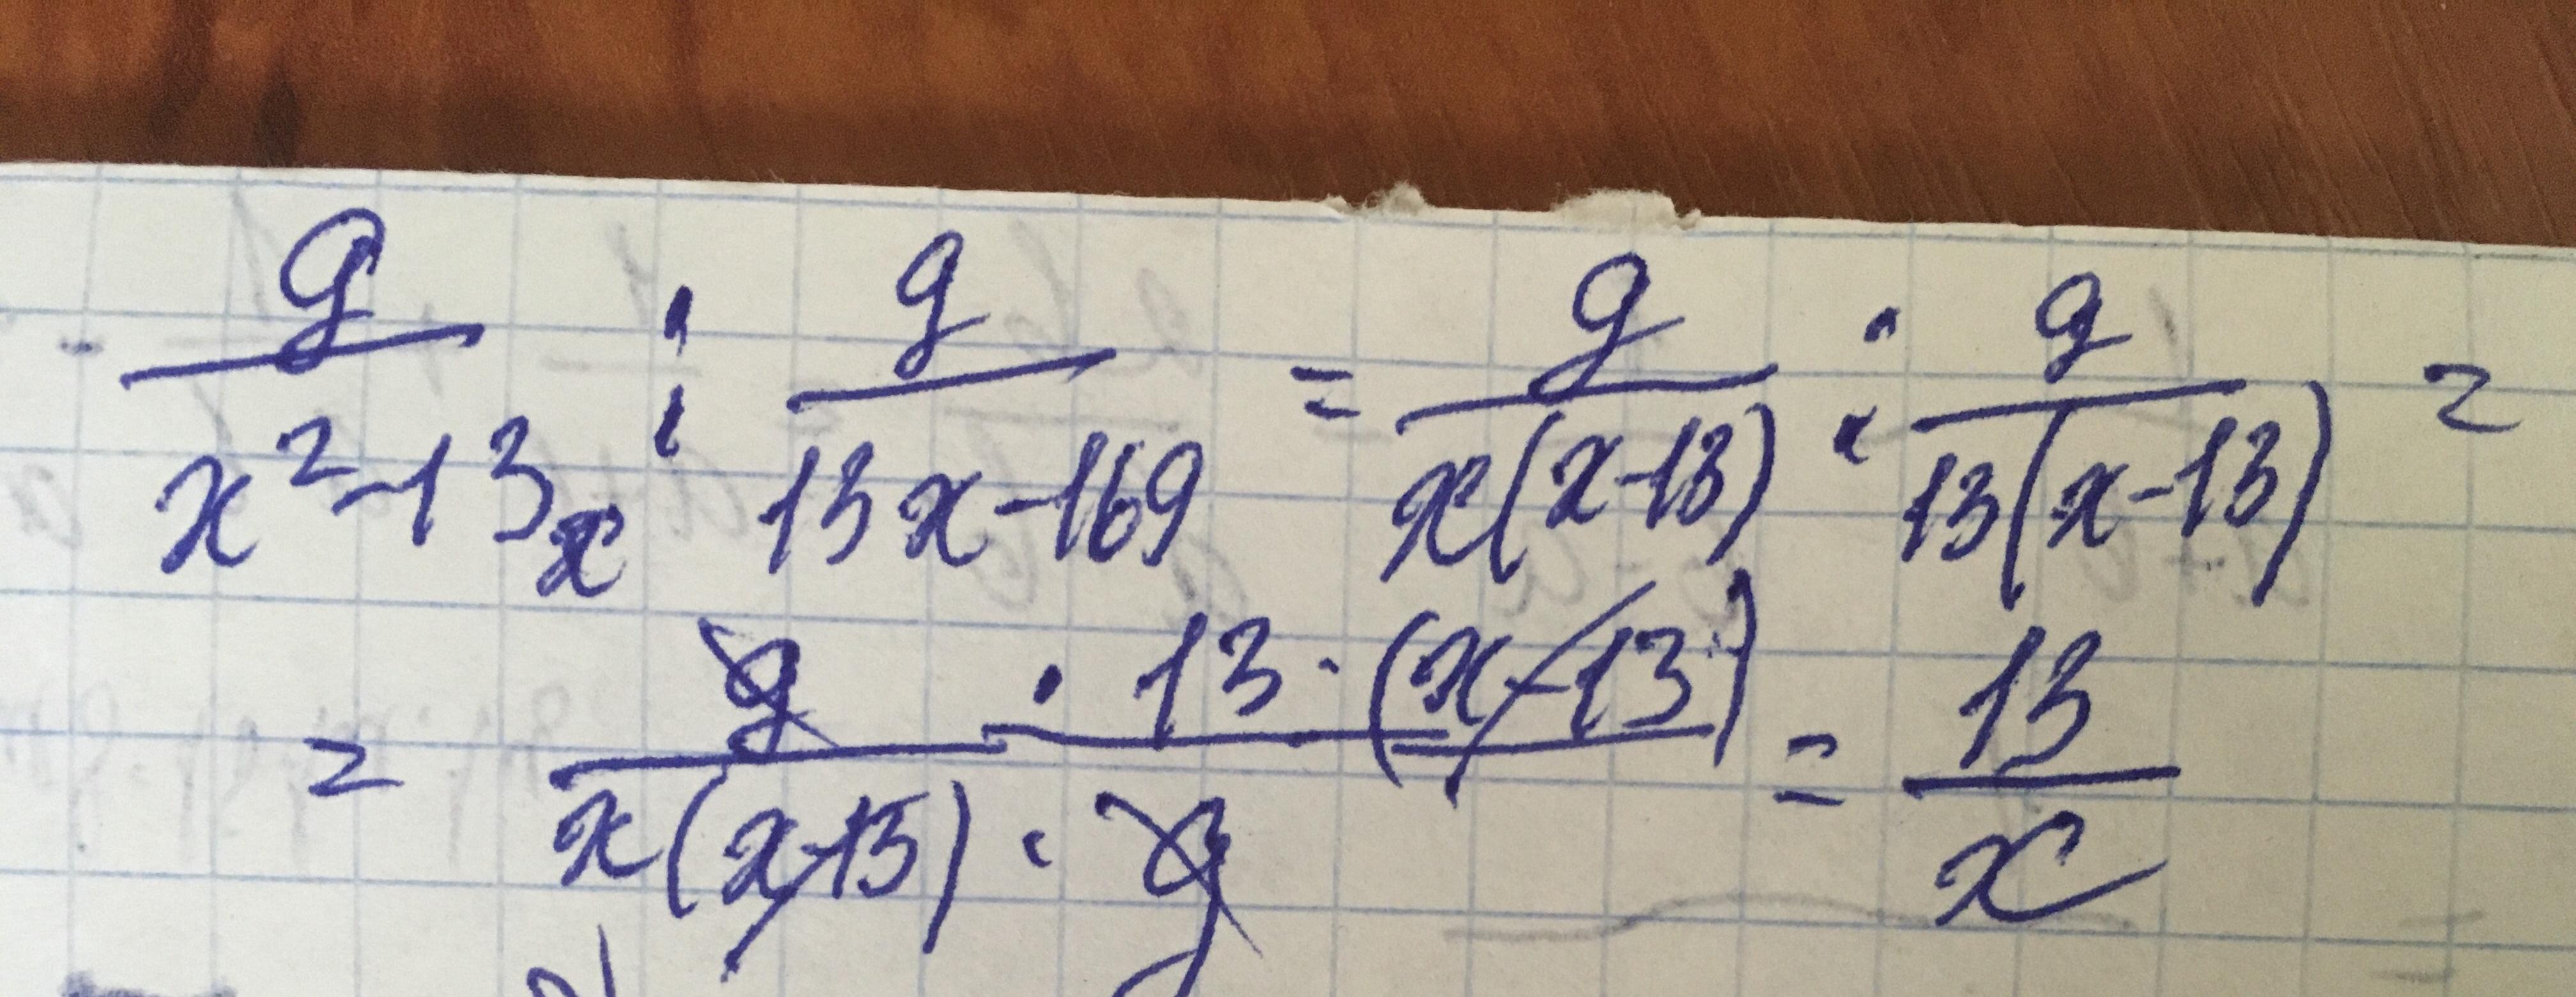 g/(x²-13x) : g/(13x-169) = g/(x(x-13)) : g/(13(x-13)) =
= (g · 13 · (x-13))/(x(x-13) · g) = 13/x